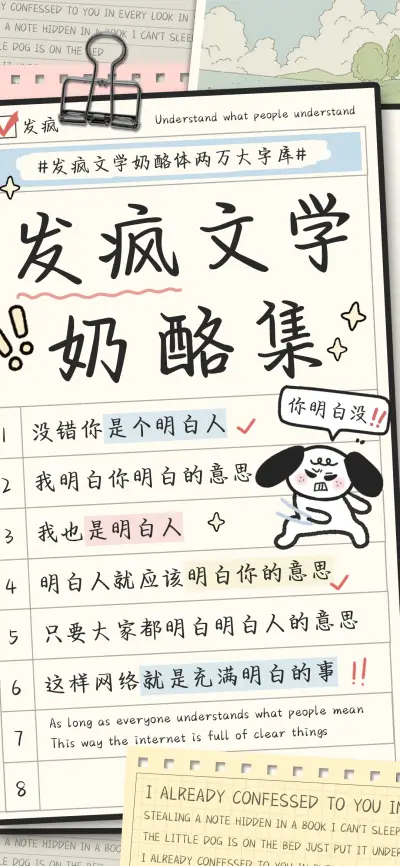 CONFESSED TO YOU IN EVERY LOOK IN
A NOTE HIDDEN IN A BOOK I CAN'T SLEE
LITTLE DOG IS ON THE BED
发疯
Understand what people understand
#发疯文学奶酪体两万大字库#
发疯文学
奶酪集
你明白没!!
1 没错你是个明白人
2 我明白你明白的意思
3 我也是明白人
4 明白人就应该明白你的意思
5 只要大家都明白明白人的意思
6 这样网络就是充满明白的事!!
7 As long as everyone understands what people mean
This way the internet is full of clear things
8
I ALREADY CONFESSED TO YOU IN
STEALING A NOTE HIDDEN IN A BOOK I CAN'T SLEEP
THE LITTLE DOG IS ON THE BED JUST PUT IT UNDER
I ALREADY CONFESSED TO YOU IN
A NOTE HIDDEN IN A BOO